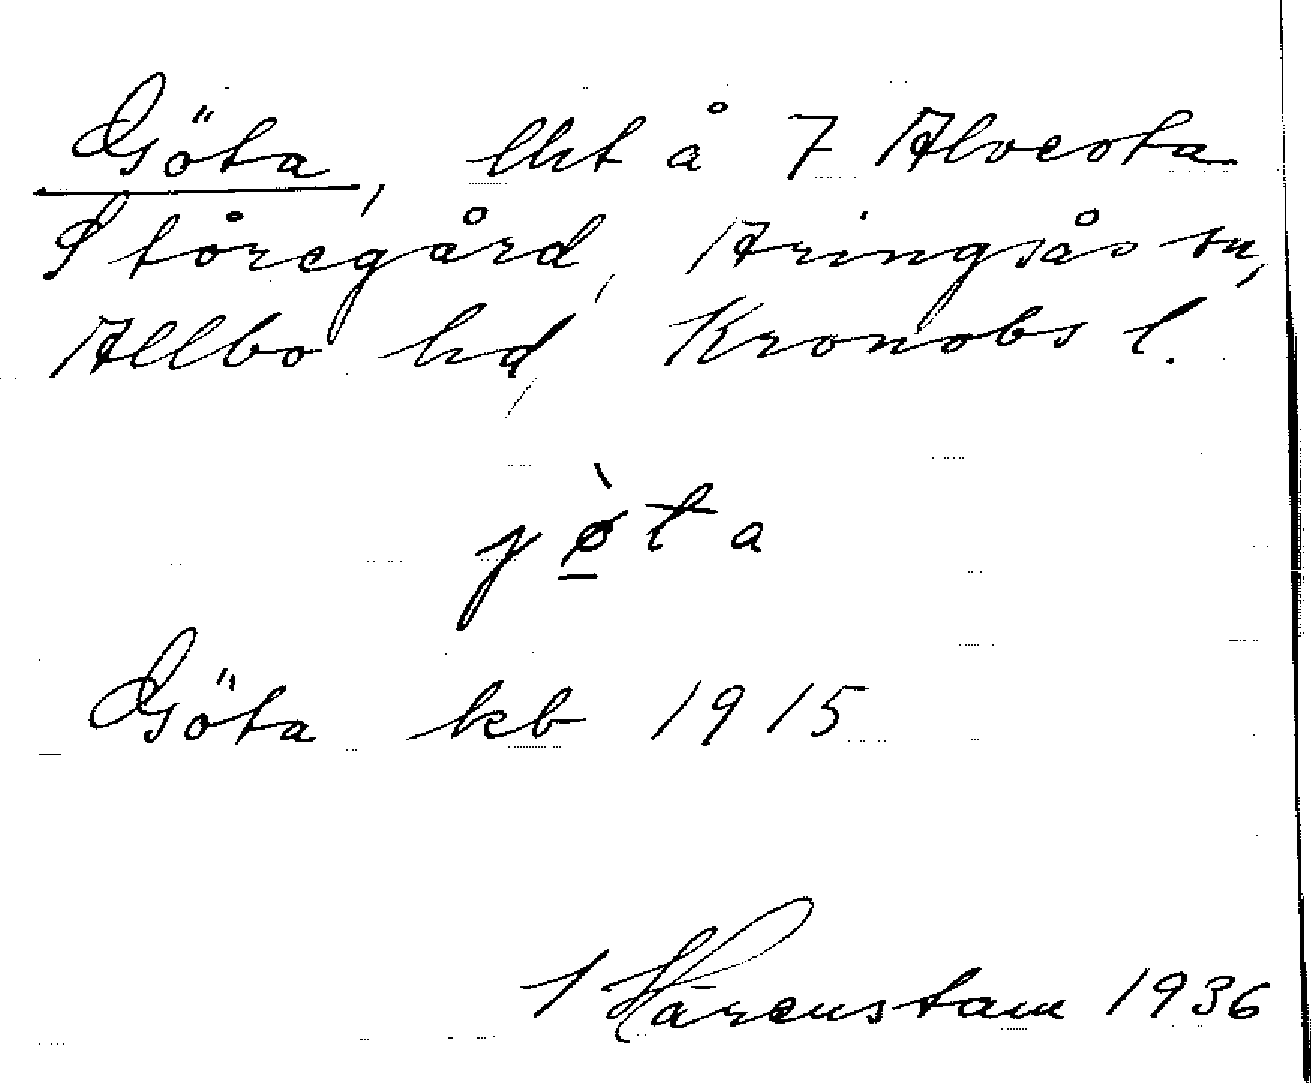 Göta, lht å 7 Alvesta
Storegård, Aringsås sn,
Allbo hd, Kronobs l.
jø̀ta
Göta kb 1915
I Härenstam 1936